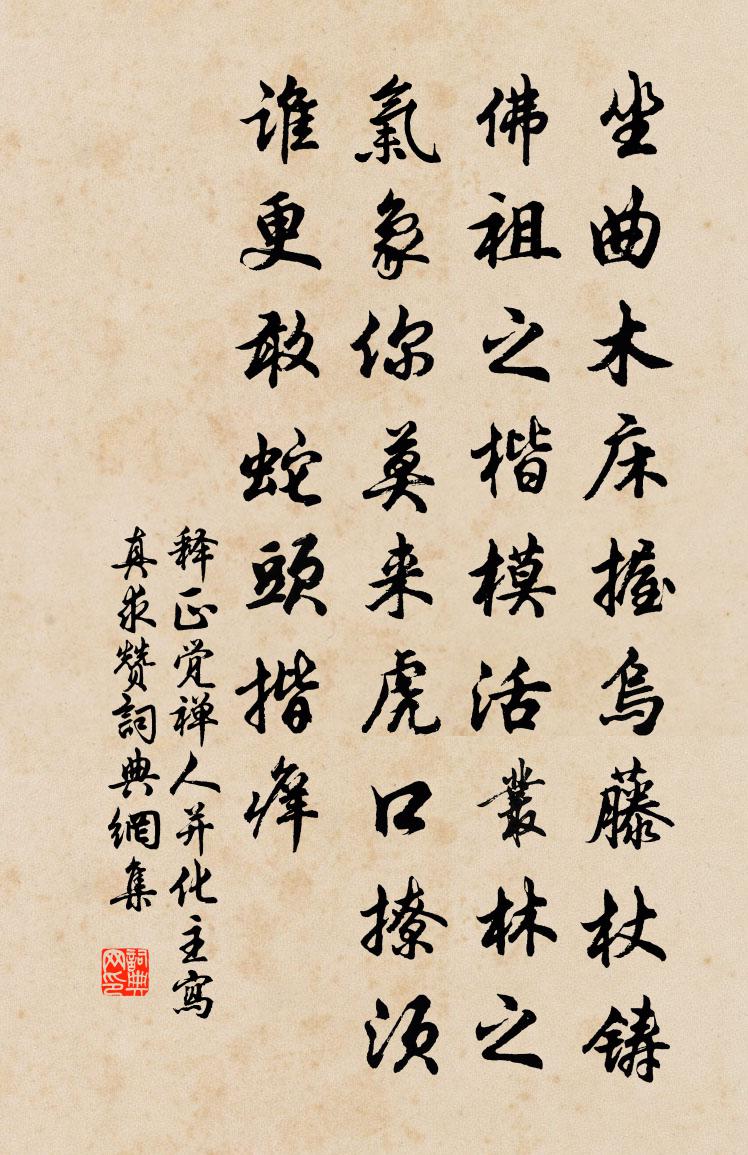 坐曲木床握乌藤杖铸
佛祖之楷模活叢林之
氣象你莫来虎口撩须
谁更敢蛇頭揩痒
释正觉禅人并化主寫
真求赞詞典網集
詞典网印